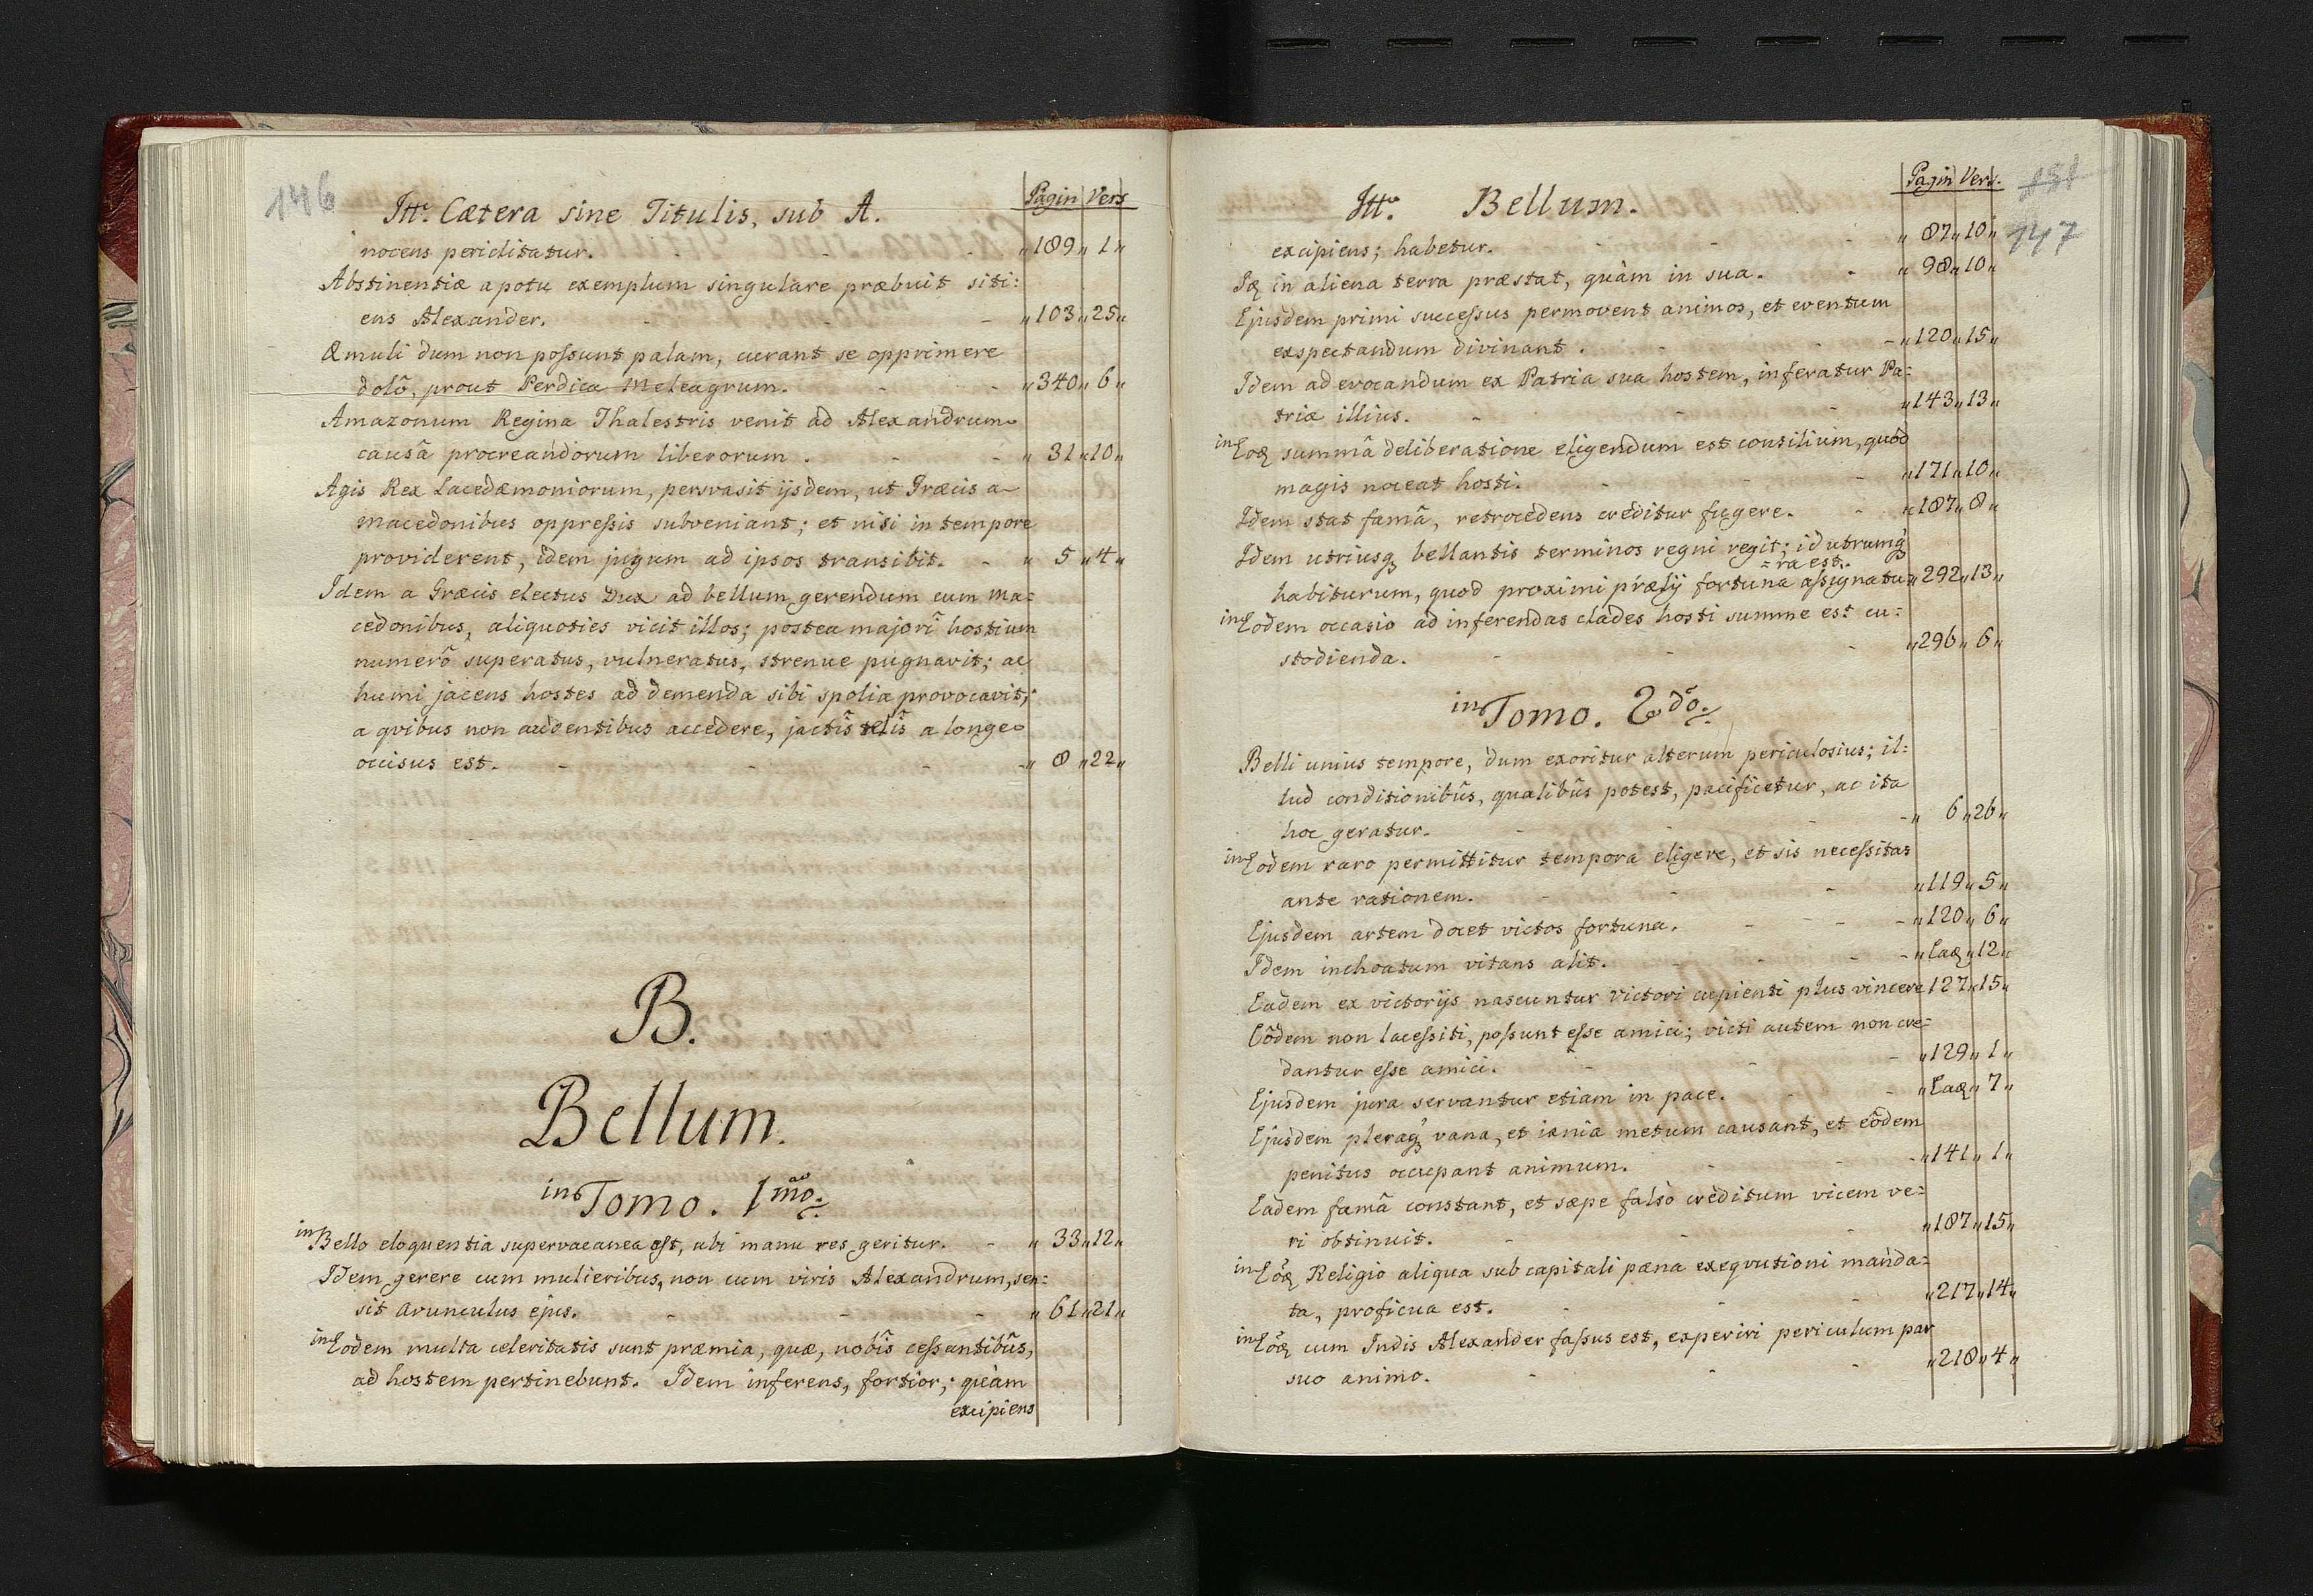 146
Itt. Cætera sine Titulis, sub A. Pagin Vers
nocens periclitatur. - - - „189„ 1„
Abstinentiæ a potu exemplum singulare præbuit siti:
ens Alexander. - - - „103„25„
Æmuli dum non possunt palam, curant se opprimere
dolô, prout Perdica Meleagrum. - - „340„ 6„
Amazonum Regina Thalestris venit ad Alexandrum
causâ procreandorum liberorum. - - „ 31„10„
Agis Rex Lacedæmoniorum, persvasit ijsdem, ut Græcis a
macedonibus oppressis subveniant; et nisi in tempore
providerent, idem jugum ad ipsos transibit. - „ 5„4„
Idem a Græcis electus Dux ad bellum gerendum cum ma:
cedonibus, aliquoties vicit illos; postea majorî hostium
numerô superatus, vulneratus, strenue pugnavit; ac
humi jacens hostes ad demenda sibi spolia provocavit;
a qvibus non audentibus accedere, jactîs telîs a longe
occisus est. - - - „ 8„22„
B.
Bellum.
in Tomo. 1mo.
in Bello eloquentia supervacanea est, ubi manu res geritur. - „ 33„12„
Idem gerere cum mulieribus, non cum viris Alexandrum, sen:
sit avunculus ejus. - - - „ 61„21„
in Eodem multa celeritatis sunt præmia, quæ, nobîs cessantibûs,
ad hostem pertinebunt. Idem inferens, fortior; quàm
excipiens
Itt. Bellum. Pagin Vers. 151
excipiens; habetur. - - - „ 87„10„ 147
Iđ in aliena terra præstat, quàm in sua. - „ 98„10„
Ejusdem primi successus permovent animos, et eventum
exspectandum divinant. - - - „120„15„
Idem ad evocandum ex Patria sua hostem, inferatur Pa:
triæ illius. - - - „143„13„
in Eođ summâ deliberatione eligendum est consilium, quod
magis noceat hosti. - - - „171„10„
Idem stat famâ, retrocedens creditur fugere. - „187„ 8„
Idem utriusq bellantis terminos regni regit; id utrumq
=ra est.
habiturum, quod proximi prælij fortuna assignatu= „292„13„
in Eodem occasio ad inferendas clades hosti summe est cu:
stodienda. - - - „296„ 6„
in Tomo. 2do.
Belli unius tempore, dum exoritur alterum periculosius; il:
lud conditionibûs, qualibûs potest, pacificetur, ac ita
hoc geratur. - - - „ 6„26„
in Eodem raro permittitur tempora eligere, et sis necessitas
ante rationem. - - - „119„5„
Ejusdem artem docet victos fortuna. - - - „120„ 6„
Idem inchoatum vitans alit. - - - „Eađ„12„
Eadem ex victorijs nascuntur victori cupienti plus vincere 127„15„
Eôdem non lacessiti, possunt esse amici; victi autem non cre:
dantur esse amici. - - - „129„ 1„
Ejusdem jura servantur etiam in pace. - - „Eađ„ 7„
Ejusdem pleraq vana, et inania metum causant, et eôdem
penitus occupant animum. - - - „141„ 1„
Eadem famâ constant, et sæpe falsò creditum vicem ve:
ri obtinuit. - - - „187„15„
in Eôđ Religio aliqua sub capitali pæna exeqvutioni manda:
ta, proficua est. - - - „217„14„
in Eôđ cum Indis Alexander fassus est, experiri periculum par
suo animo. - - - „218„4„